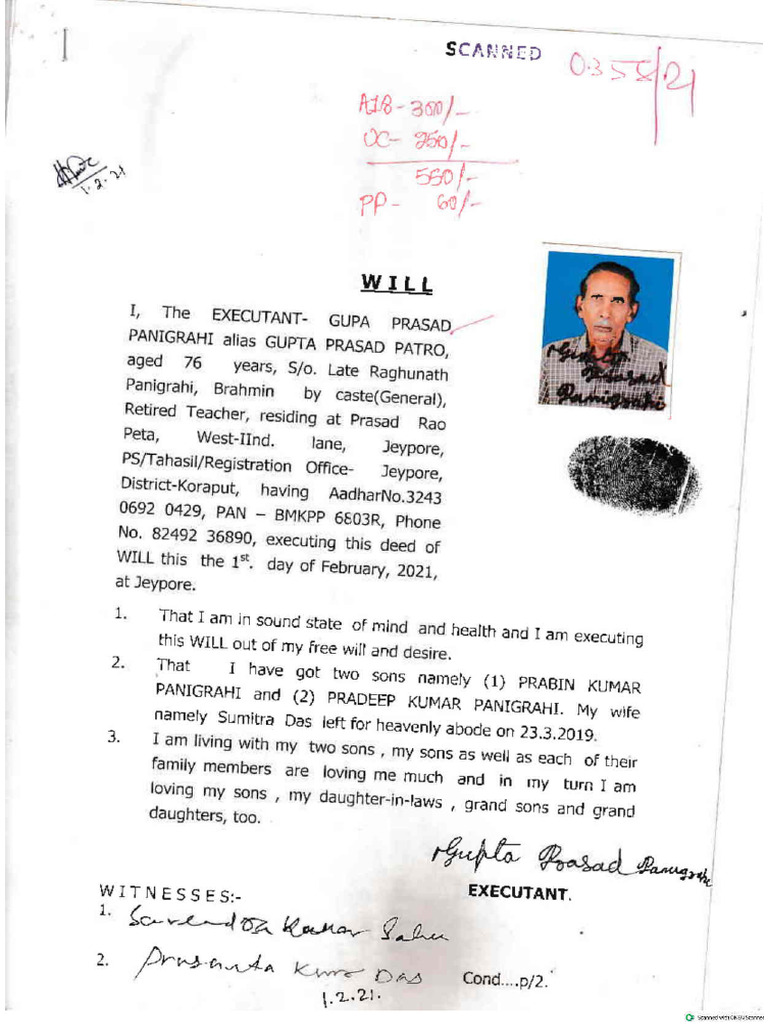 SCANNED
0358/21
A18 - 300/-
UC - 250/-
550/-
PP - 60/-
1.2.21
WILL
I, The EXECUTANT- GUPA PRASAD
PANIGRAHI alias GUPTA PRASAD PATRO,
aged 76 years, S/o. Late Raghunath
Panigrahi, Brahmin by caste(General),
Retired Teacher, residing at Prasad Rao
Peta, West-IInd. lane, Jeypore,
PS/Tahasil/Registration Office- Jeypore,
District-Koraput, having AadharNo.3243
0692 0429, PAN – BMKPP 6803R, Phone
No. 82492 36890, executing this deed of
WILL this the 1st. day of February, 2021,
at Jeypore.
Prasad
Panigrahi
1. That I am in sound state of mind and health and I am executing
this WILL out of my free will and desire.
2. That I have got two sons namely (1) PRABIN KUMAR
PANIGRAHI and (2) PRADEEP KUMAR PANIGRAHI. My wife
namely Sumitra Das left for heavenly abode on 23.3.2019.
3. I am living with my two sons , my sons as well as each of their
family members are loving me much and in my turn I am
loving my sons , my daughter-in-laws , grand sons and grand
daughters, too.
Gupta Prasad Panigrahi
EXECUTANT.
WITNESSES:-
1. Sarendra Kumar Sahu
2. Prasanta Kumar Das
Cond....p/2.
1.2.21.
Scanned with OKEN Scanner